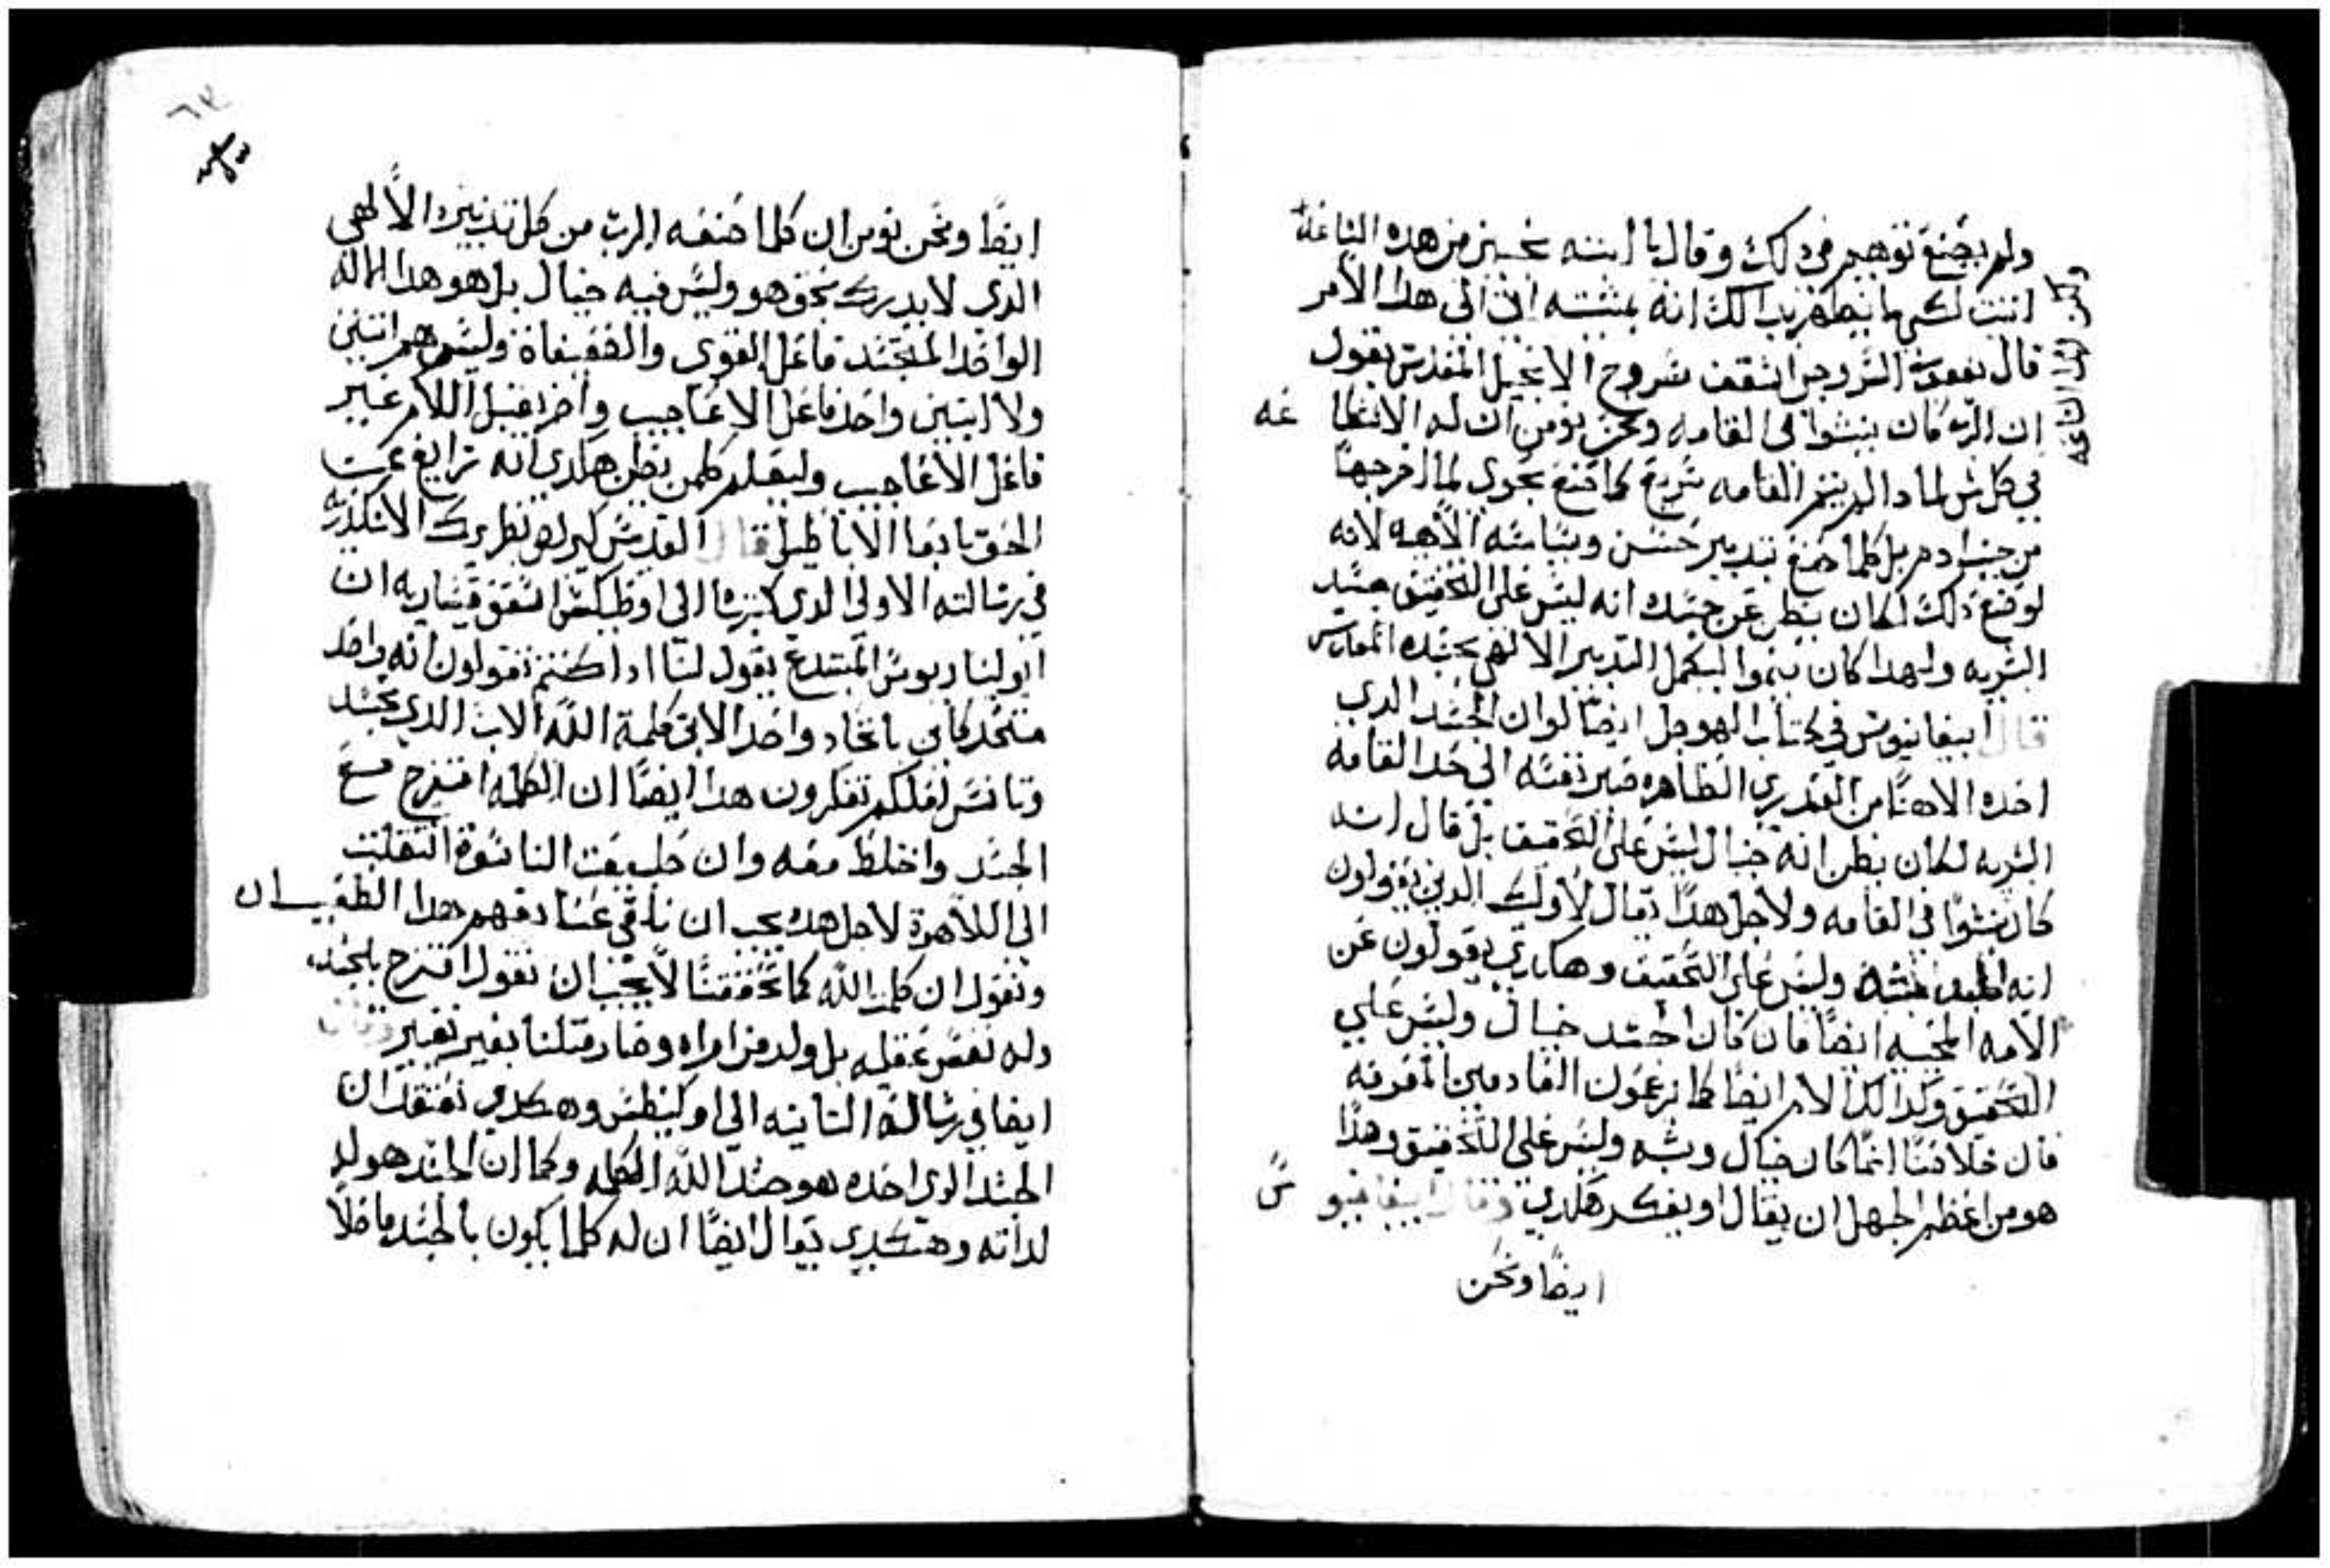 ولم يصنع توهيم في ذلك وقال يا ابنته نحسين من هذه الساعة
ولكن لهذا الساعه
انتت لكي ما يظهر بذالك انه بمشيته اتي الي هدا الامر
قال يعقوب السروجي اسقف سروج الانجيل المقدس يقول
ان الرب كان ينشوا في القامه ونحن نومن ان له الاستطاعه
في كل شي لمادا لم يتم القامه سريع كما صنع بحوي لما اخرجها
من جنب ادم بل كلما صنع بتدبير حسن وسياسه الاهيه لانه
لو صنع ذلك لكان يظن عن جسده انه ليس علي التحقيق جسد
البشريه ولهدا كان ينموا ليكمل التدبير الالهي بجسده المقدس
قال ابيفانيوس في كتاب الهوجل ايضا لو ان الجسد الدي
اخده الاهنا من العدري الطاهره صير نفسه الي حد القامه
البشريه لكان يظن انه خيال ليس علي التحقيق بل قال انه
كان ينشوا في القامه ولاجل هدا يقال لاولك الدين يقولون
انه بشبه وليس علي التحقيق وهكدي يقولون عن
الامه المحييه ايضا فان كان الجسد خيال وليس علي
التحقيق وكدالك الالام ايضا كما يزعمون القادمين المعرفه
فان خلاصنا انما كان خيال وشبه وليس علي التحقيق وهدا
هو من اعظم الجهل ان يقال او يفكر هكدي وقال ابيفانيوس
ايضا ونحن
ايضا ونحن نومن ان كلما صنعه الرب من كل تدبيره الالهي
الدي لا يدرك بحق هو وليس فيه خيال بل هو هدا الاله
الواحد المتجسد فاعل القوي والضعيفاة وليس هم اتنين
ولا ابنين واحد فاعل الاعاجيب واخر يقبل الالام غير
فاعل الاعاجيب وليعلم كلمن يظن هكدي انه زايغ عن
الحق تابعا الاباطيل قال القديس كيرلص بطريرك الاسكندريه
في رسالته الاولي الدي كتبها الي اسقف قيساريه ان
ابوليناريوس المبتدع يقول لنا ادا كنتم تقولون انه واحد
متحد كاين باتحاد واحد الابن كلمة الله الاب الدي تجسد
وتانس لعلكم تفكرون هدا ايضا ان الكلمه امتزج مع
الجسد واختلط معه وان طبيعت الناسوة انتقلت
الي اللاهوة لاجل هدا يجب ان
ونقول ان كلمت الله كما تحققنا لا يجب ان نقول امتزج بالجسد
وله نفس عقليه بل ولد من امراه وصار متلنا بغير تغيير وقال
ايضا في رسالته التانيه الي وهكدي نعتقد ان
الجسد الدي اخده هو جسد الله الكلمه وكما ان الجسد هو له
لداته وهكدي يقال ايضا ان له كلما يكون بالجسد ما خلا